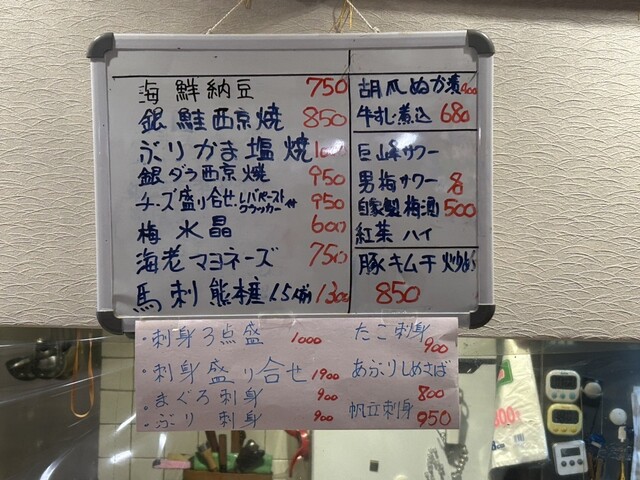 海鮮納豆 750
銀鮭西京焼 850
ぶりかま塩焼 1000
銀ダラ西京焼 950
チーズ盛り合せ、レバーペースト クラッカー付 950
梅水晶 600
海老マヨネーズ 750
馬刺 熊本産 1.5人前 1300
胡瓜ぬか漬 400
牛すじ煮込 680
巨峰サワー
男梅サワー 各
自家製梅酒 500
紅茶ハイ
豚キムチ炒め
850
・刺身3点盛 1000
・刺身盛り合せ 1900
・まぐろ刺身 900
・ぶり刺身 900
たこ刺身 900
あぶりしめさば 800
帆立刺身 950